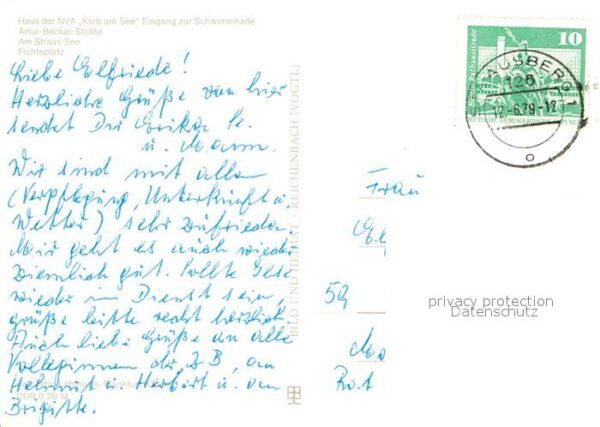 Haus der NVA „Klub am See“ Eingang zur Schwimmhalle
Artur-Becker-Straße
Am Straus-See
Fichteplatz
Liebe Elfriede!
Herzliche Grüße von hier
sendet Dir Erika
u. Mann.
Wir sind mit allem
(Verpflegung, Unterkunft u.
Wetter) sehr zufrieden.
Mir geht es auch wieder
ziemlich gut. Sollte
wieder im Dienst sein,
grüße bitte recht herzlich.
Auch liebe Grüße an alle
Kolleginnen der ZB, an
Helmut u. Herbert u. an
Brigitte.
DDR 0,20 M
BILD UND HEIMAT REICHENBACH (VOGTL)
10
Berlin, Rathausstraße
DEUTSCHE DEMOKRATISCHE
STRAUSBERG 1
126
12.-6.79-12
Frau
El
50
Rat
privacy protection
Datenschutz